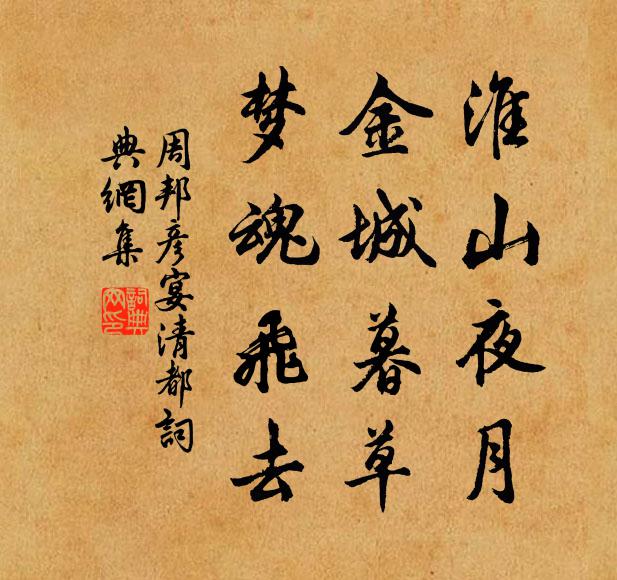 淮山夜月
金城暮草
梦魂飛去
周邦彦宴清都詞
典網集
詞典
网印